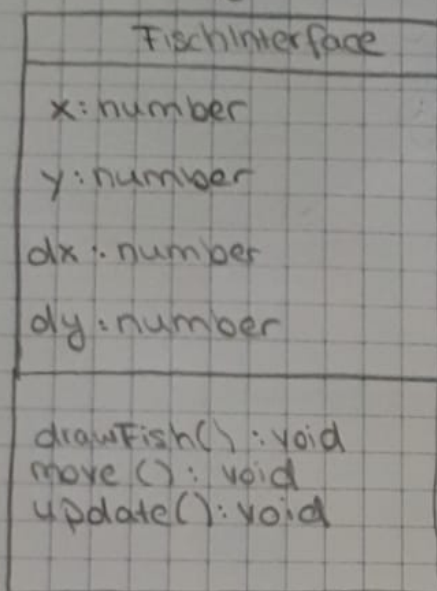 FischInterface
x: number
y: number
dx: number
dy: number
drawFish(): void
move(): void
update(): void